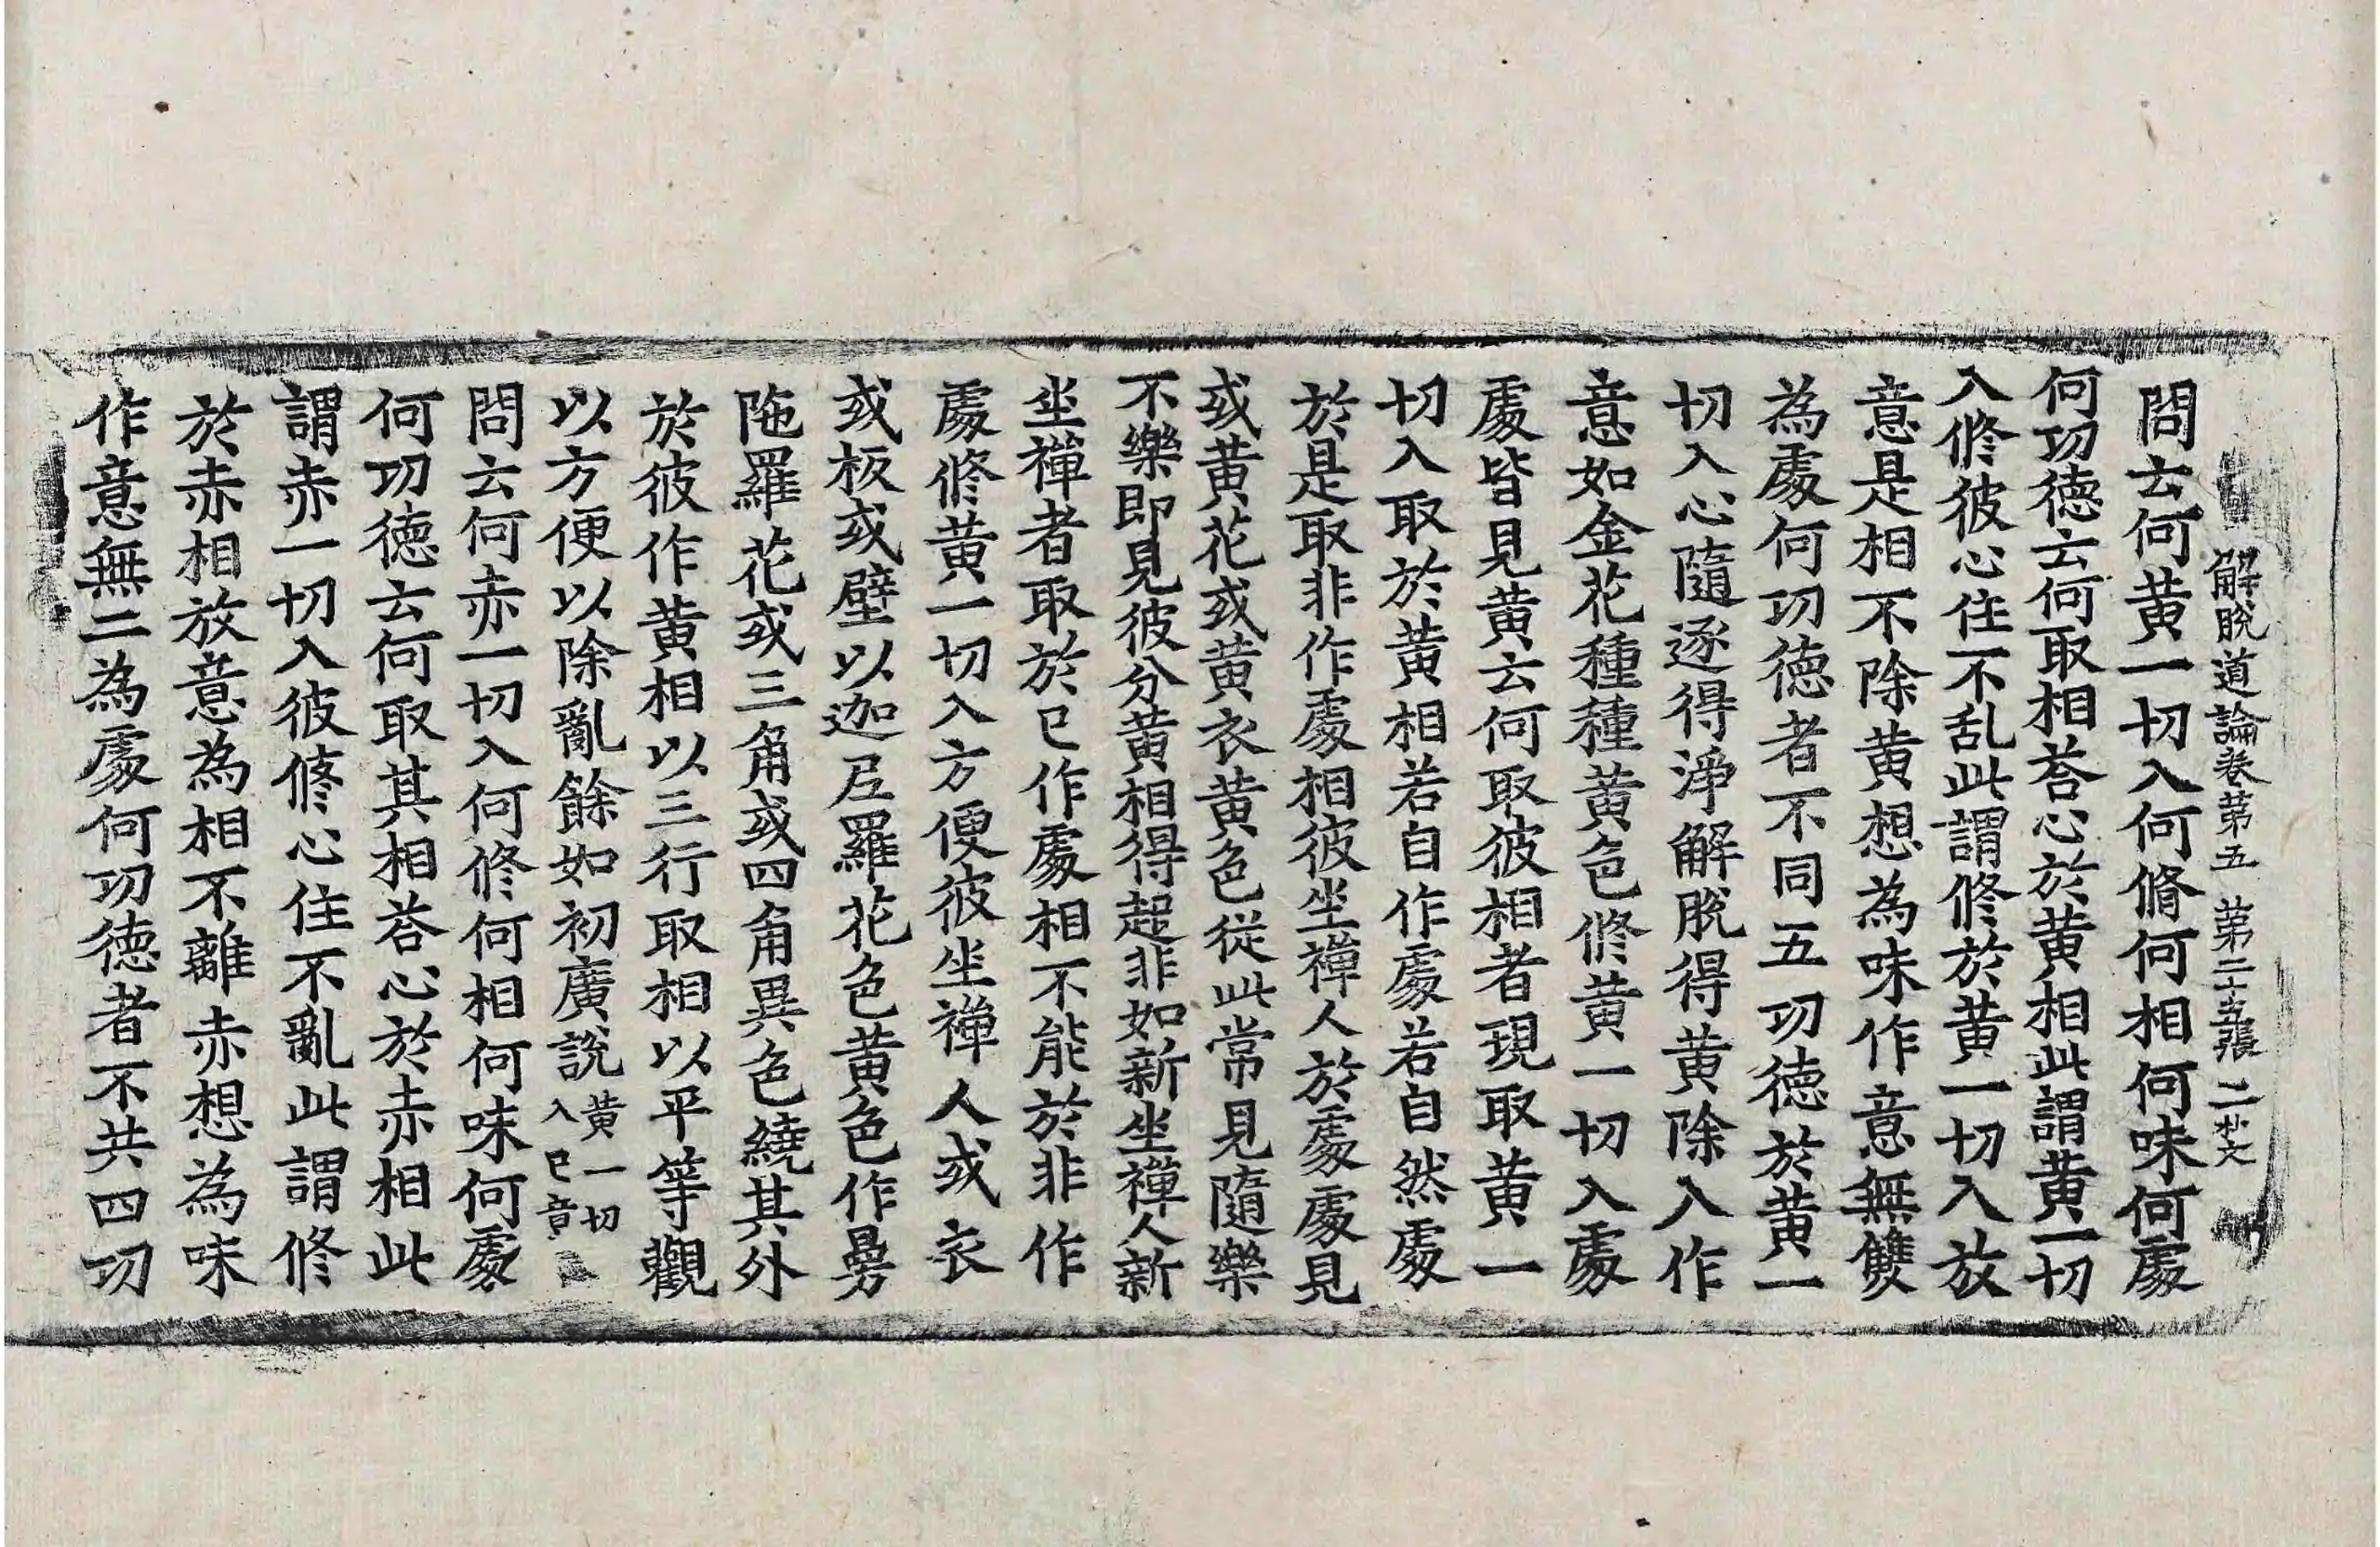 解脫道論卷第五 第二十五張 二
問云何黃一切入何脩何相何味何處
何功德云何取相荅心於黃相此謂黃一切
入修彼心住不乱此謂修於黃一切入放
意是相不除黃想為味作意無雙
為處何功德者不同五功德於黃一
切入心隨逐得淨解脫得黃除入作
意如金花種種黃色修黃一切入處
處皆見黃云何取彼相者現取黃一
切入取於黃相若自作處若自然處
於是取非作處相彼坐禪人於處處見
或黃花或黃衣黃色從此常見隨樂
不樂即見彼分黃相得起非如新坐禪人新
坐禪者取於已作處相不能於非作
處修黃一切入方便彼坐禪人或衣
或板或壁以迦尼羅花色黃色作曼
陁羅花或三角或四角異色繞其外
於彼作黃相以三行取相以平等觀
以方便以除亂餘如初廣說黃一切入已竟
問云何赤一切入何修何相何味何處
何功德云何取其相荅心於赤相此
謂赤一切入彼修心住不亂此謂修
於赤相放意為相不離赤想為味
作意無二為處何功德者不共四功